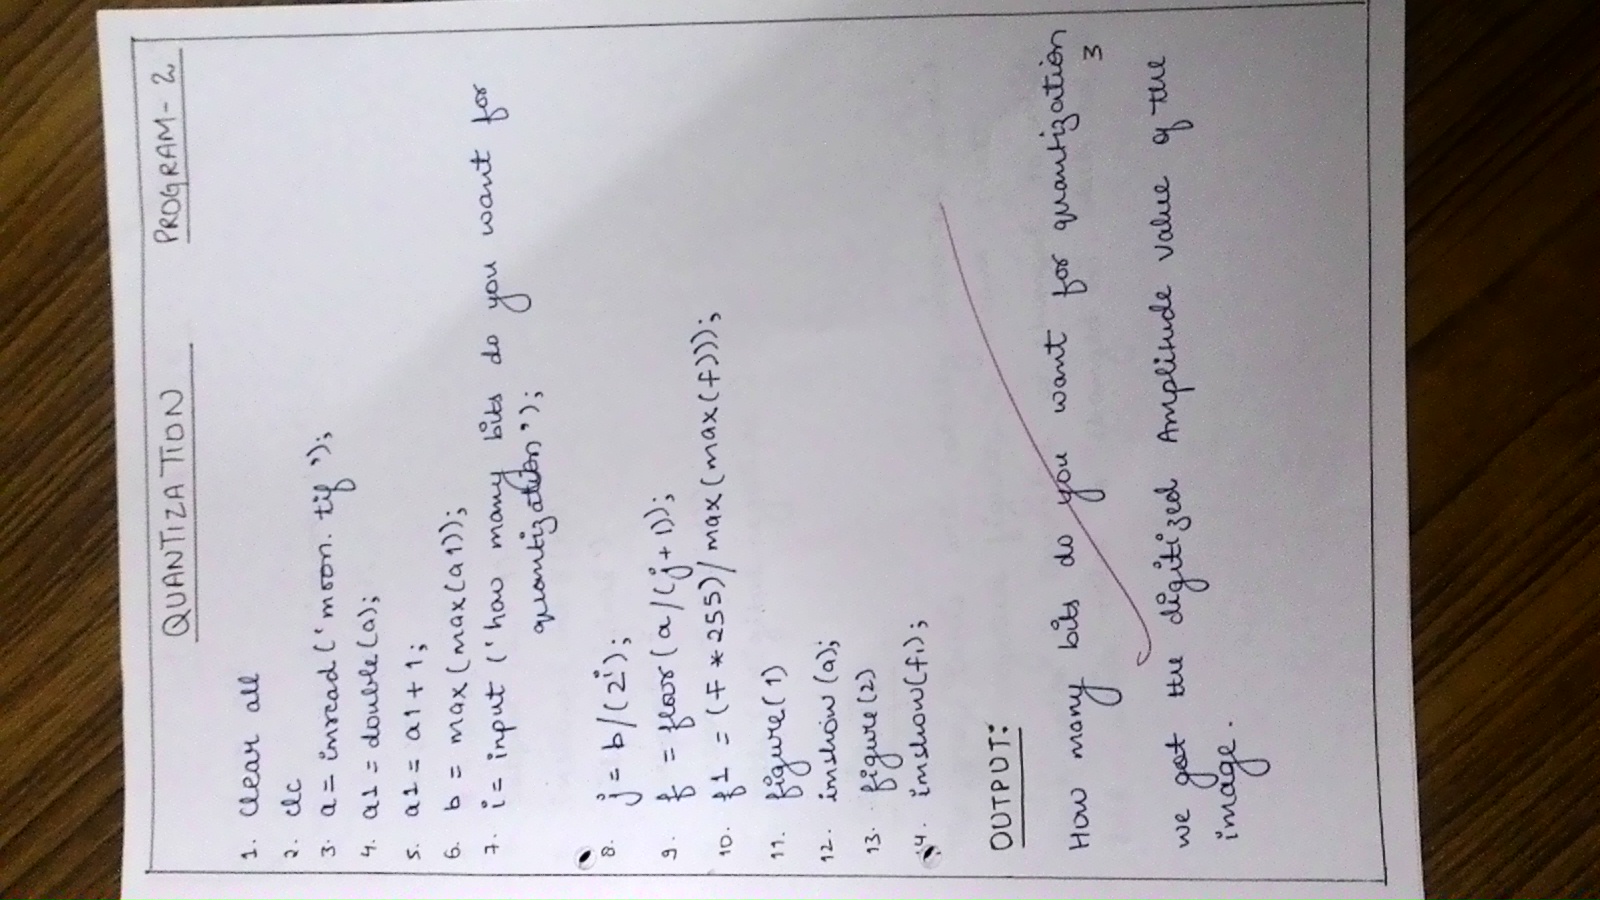 QUANTIZATION PROGRAM-2
1. clear all
2. clc
3. a = imread ('moon. tif ');
4. a1 = double(a);
5. a1 = a1 + 1;
6. b = max (max(a1));
7. i = input ('how many bits do you want for
quantization');
8. j = b/(2^i);
9. f = floor(a/(j+1));
10. f1 = (f *255)/ max(max(f)));
11. figure(1)
12. imshow (a);
13. figure(2)
14. imshow(f1);
OUTPUT:
How many bits do you want for quantization
3
we got the digitized Amplitude value of the
image.